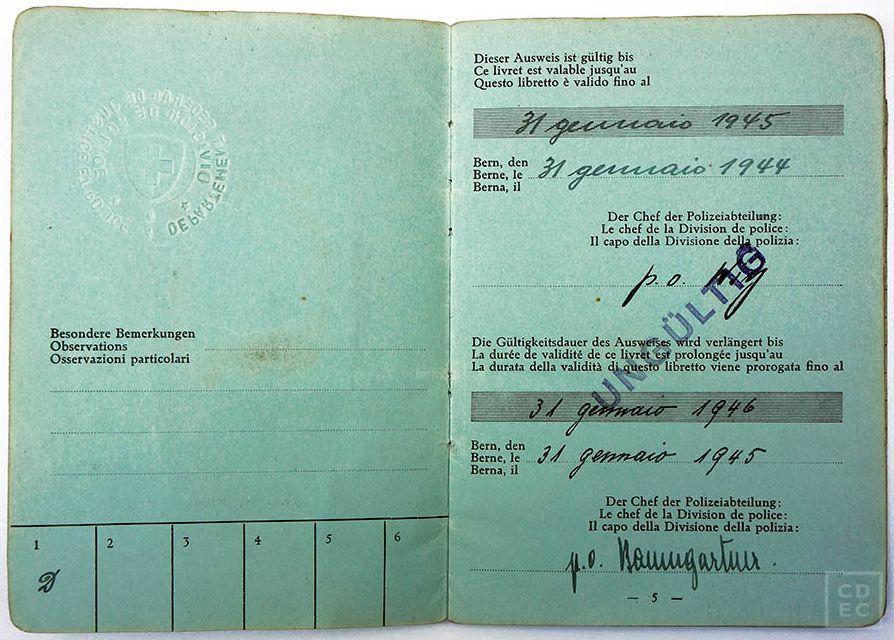 Besondere Bemerkungen
Observations
Osservazioni particolari
1 2 3 4 5 6
D
Dieser Ausweis ist gültig bis
Ce livret est valable jusqu'au
Questo libretto è valido fino al
31 gennaio 1945
Bern, den
Berne, le 31 gennaio 1944
Berna, il
Der Chef der Polizeiabteilung:
Le chef de la Division de police:
Il capo della Divisione della polizia:
p.o.
UNGÜLTIG
Die Gültigkeitsdauer des Ausweises wird verlängert bis
La durée de validité de ce livret est prolongée jusqu'au
La durata della validità di questo libretto viene prorogata fino al
31 gennaio 1946
Bern, den
Berne, le 31 gennaio 1945
Berna, il
Der Chef der Polizeiabteilung:
Le chef de la Division de police:
Il capo della Divisione della polizia:
p.o. Baumgartner.
— 5 —
CD
EC